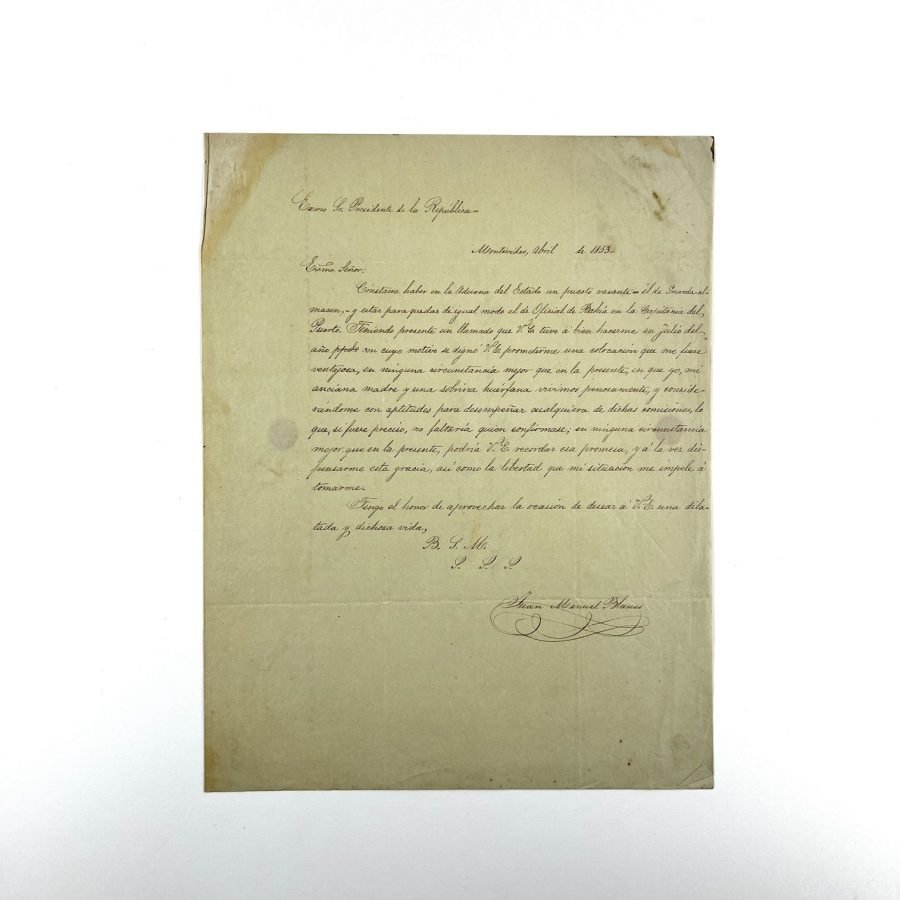 Exmo Sr. Presidente de la República—
Montevideo, Abril de 1853.
Exmo. Señor:
Constame haber en la Aduana del Estado un puesto vacante – él de Guarda-al-
macen, – y estar para quedar de igual modo el de Oficial de Bahía en la Capitania del
Puerto. Teniendo presente un llamado que V.E. tuvo á bien hacerme en Julio del
año ppdo con cuyo motivo se dignó V.E. prometerme una colocacion que me fuese
ventajosa, en ninguna circunstancia mejor que en la presente, en que yo, mi
anciana madre y una sobrina huérfana vivimos penosamente, y conside-
rándome con aptitudes para desempeñar cualquiera de dichas comisiones, lo
que, si fuere preciso, no faltaría quien confirmase; en ninguna circunstancia
mejor que en la presente, podría V.E. recordar esa promesa, y á la vez dis-
pensarme esta gracia, así como la libertad que mi situacion me impele á
tomarme.
Tengo el honor de aprovechar la ocasion de desear á V.E. una dila-
tada y dichosa vida,
B. S. M.
P. P. P.
Juan Manuel Blanes